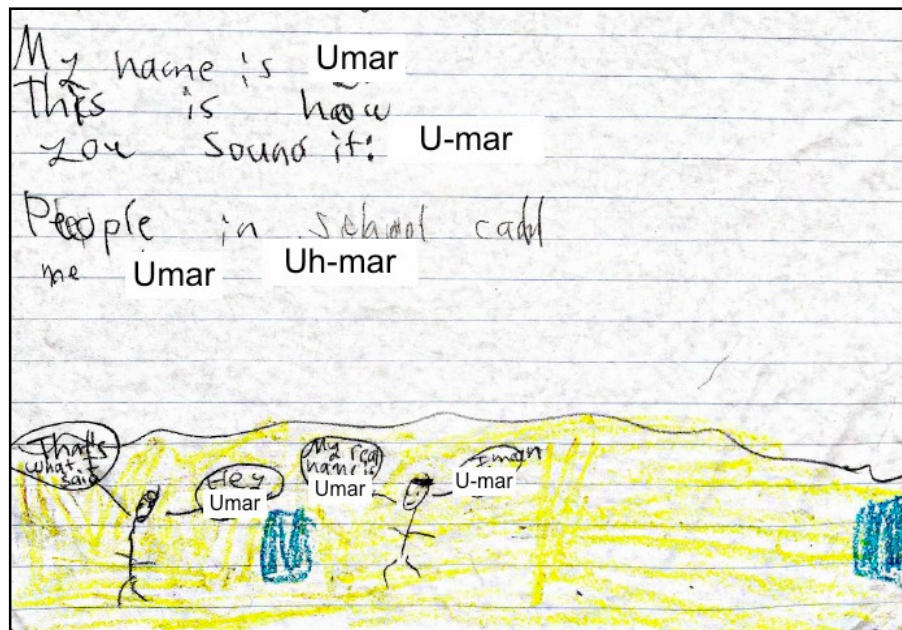 My name is Umar
This is how
you sound it: U-mar
People in school call
me Umar Uh-mar
That's
what I
said
Hey
Umar
My real
name is
Umar
I mean
U-mar